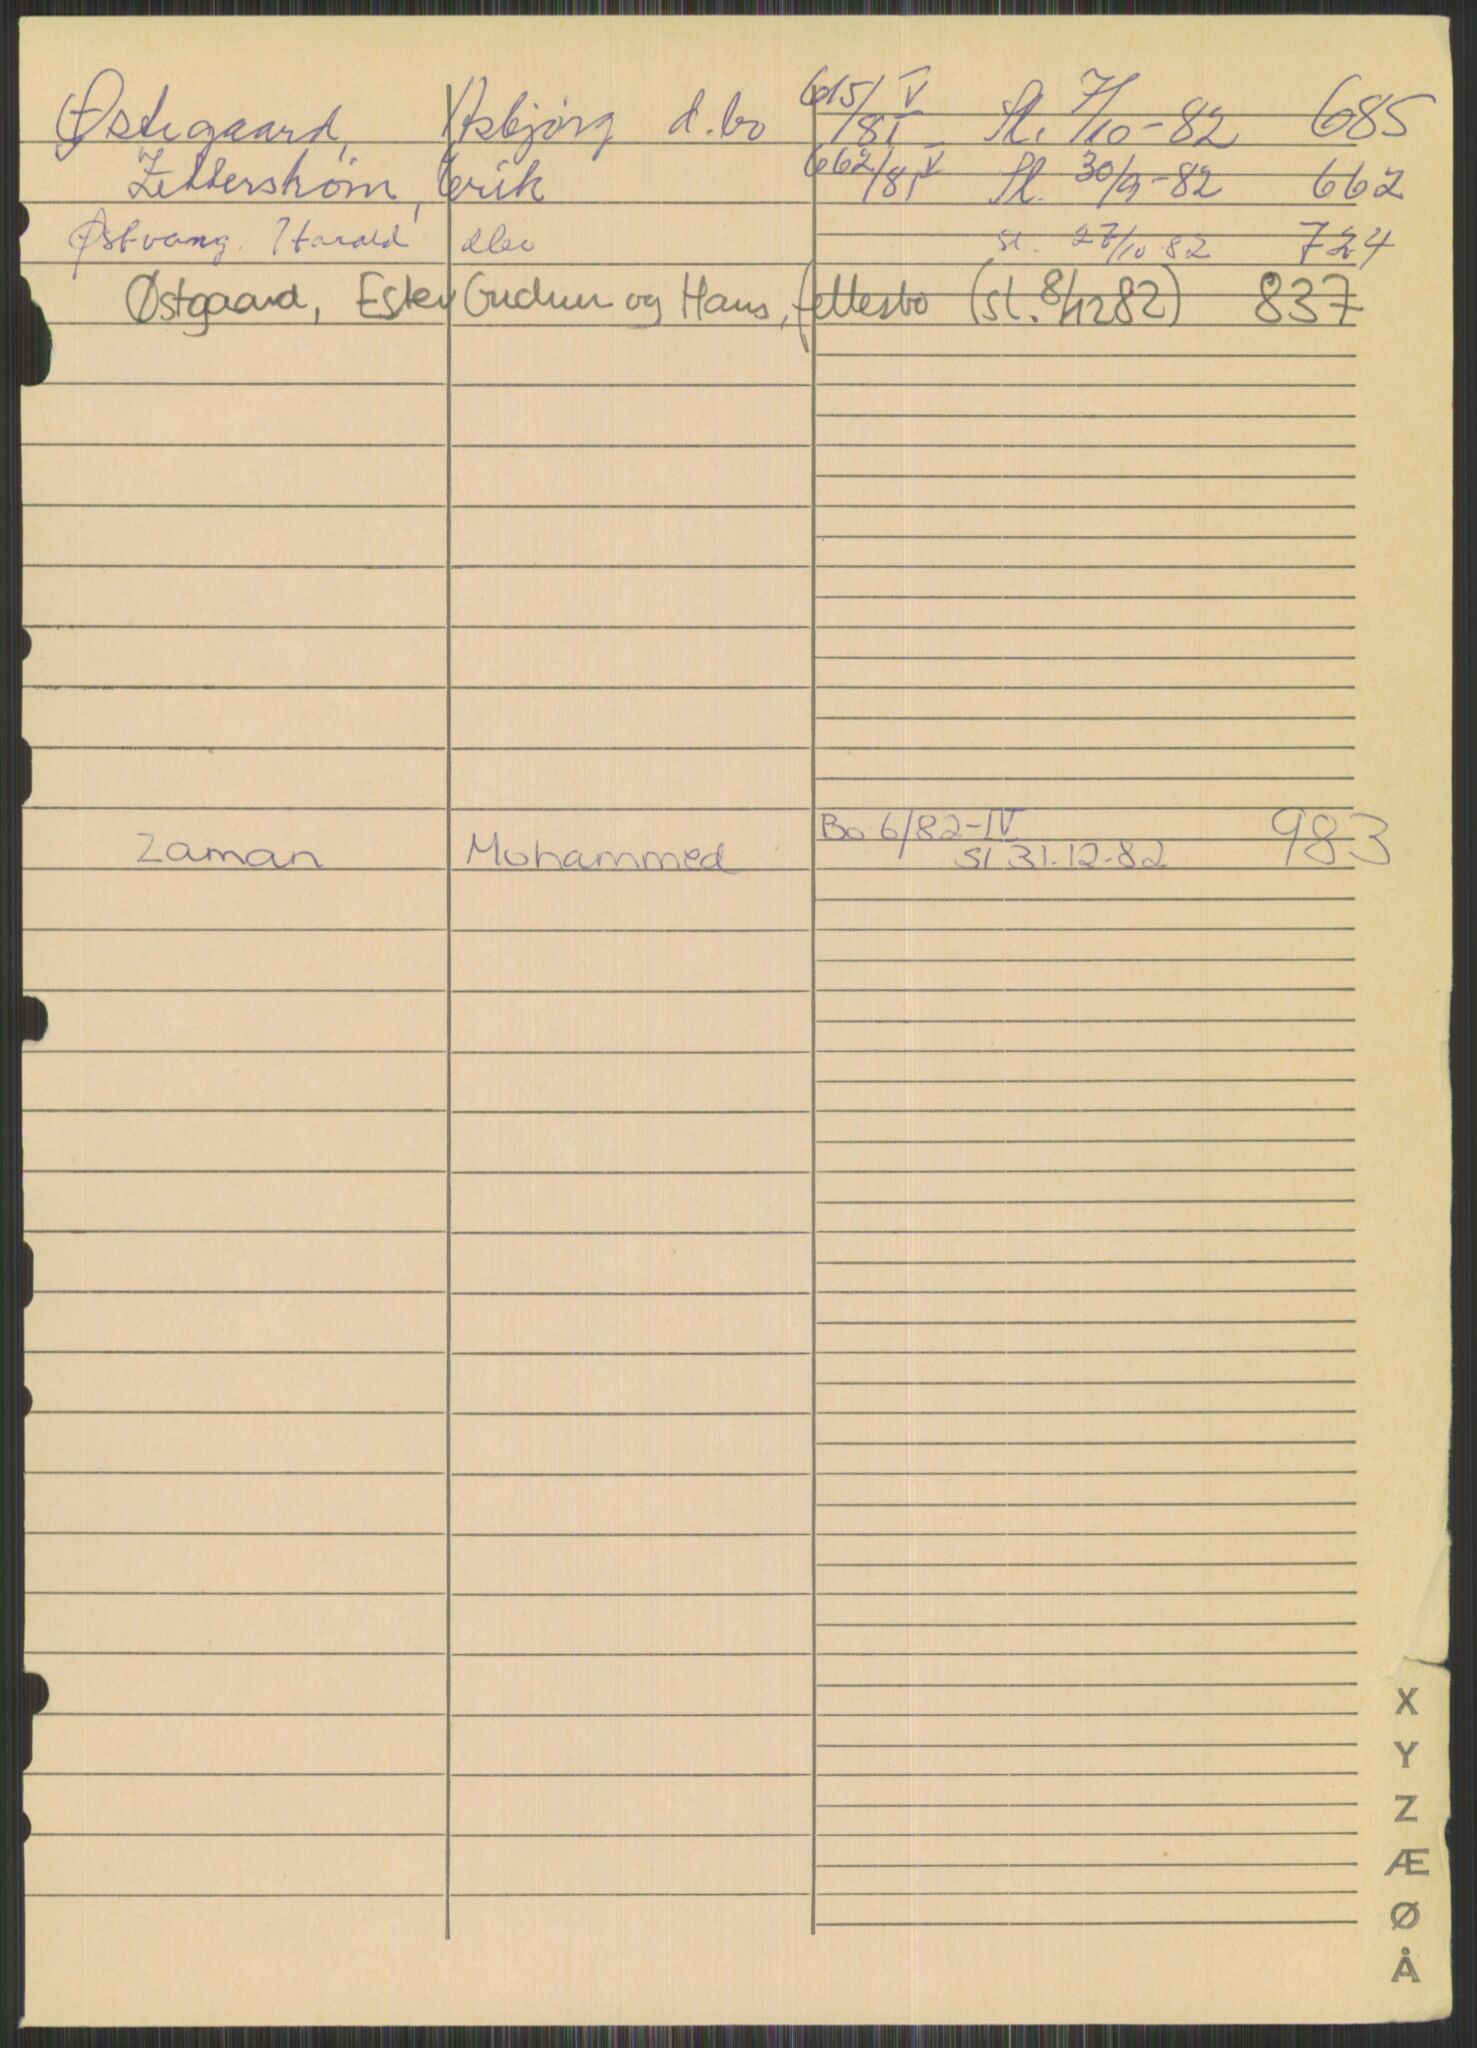 Østegaard, Asbjørg d.bo 615/81 V Sl. 7/10-82 685
Zetterstrøm, Erik 662/81 V Sl. 30/9-82 662
Østvang. Harald dbo sl. 27/10 82 724
Østgaard, Ester Gudrun og Hans, fellesbo (sl. 8/12 82) 837
Zaman Mohammed Bo 6/82-IV 983
sl 31.12-82
X
Y
Z
Æ
Ø
Å